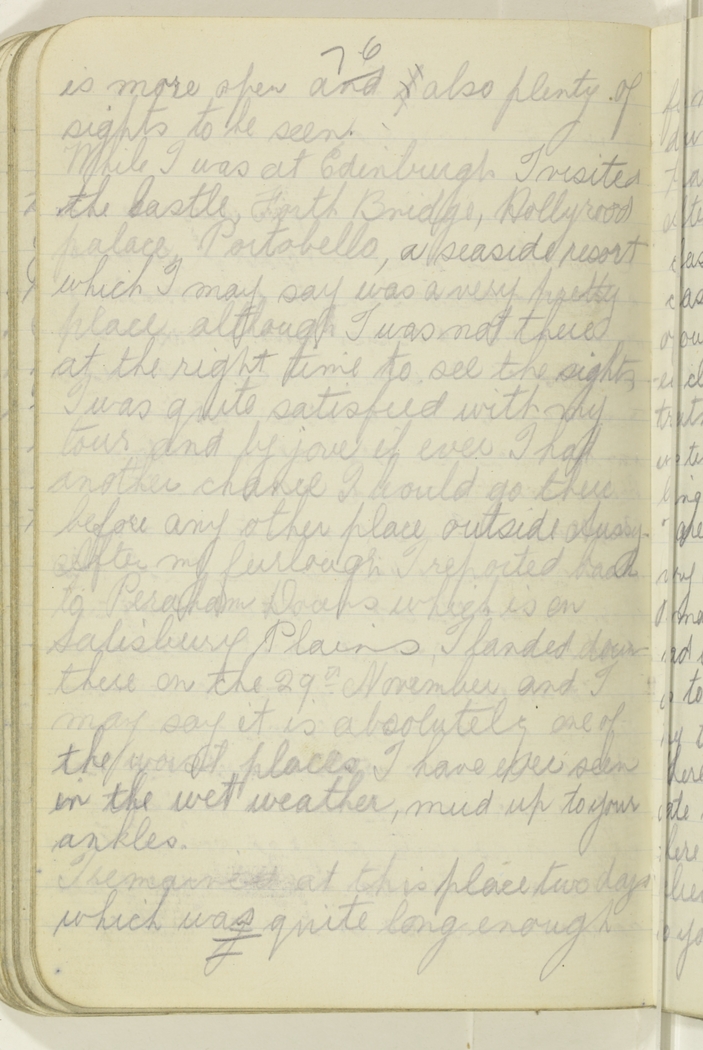 76
is more open and also plenty of
sights to be seen.
While I was at Edinburgh I visited
the Castle, Forth Bridge, Hollyrood
palace, Portobello, a seaside resort
which I may say was a very pretty
place, although I was not there
at the right time to see the sights
I was quite satisfied with my
tour and by jove if ever I had
another chance I would go there
before any other place outside Aussy.
After my furlough I reported back
to Peraham Downs which is on
Salisbury Plains, I landed down
there on the 29th November and I
may say it is absolutely one of
the worst places I have ever seen
in the wet weather, mud up to your
ankles.
I remained at this place two days
which was quite long enough